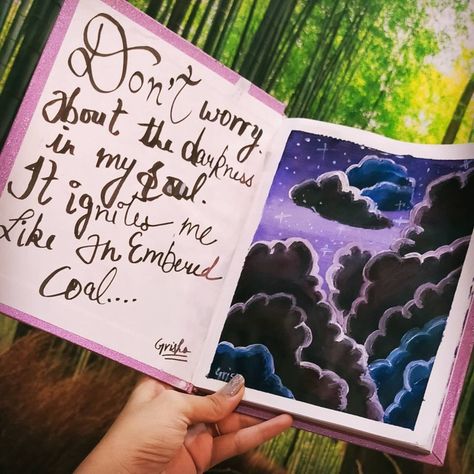 Don't worry.
About the darkness
in my Soul.
It ignites me
Like An Embered
Coal....
Grisha
Grisha